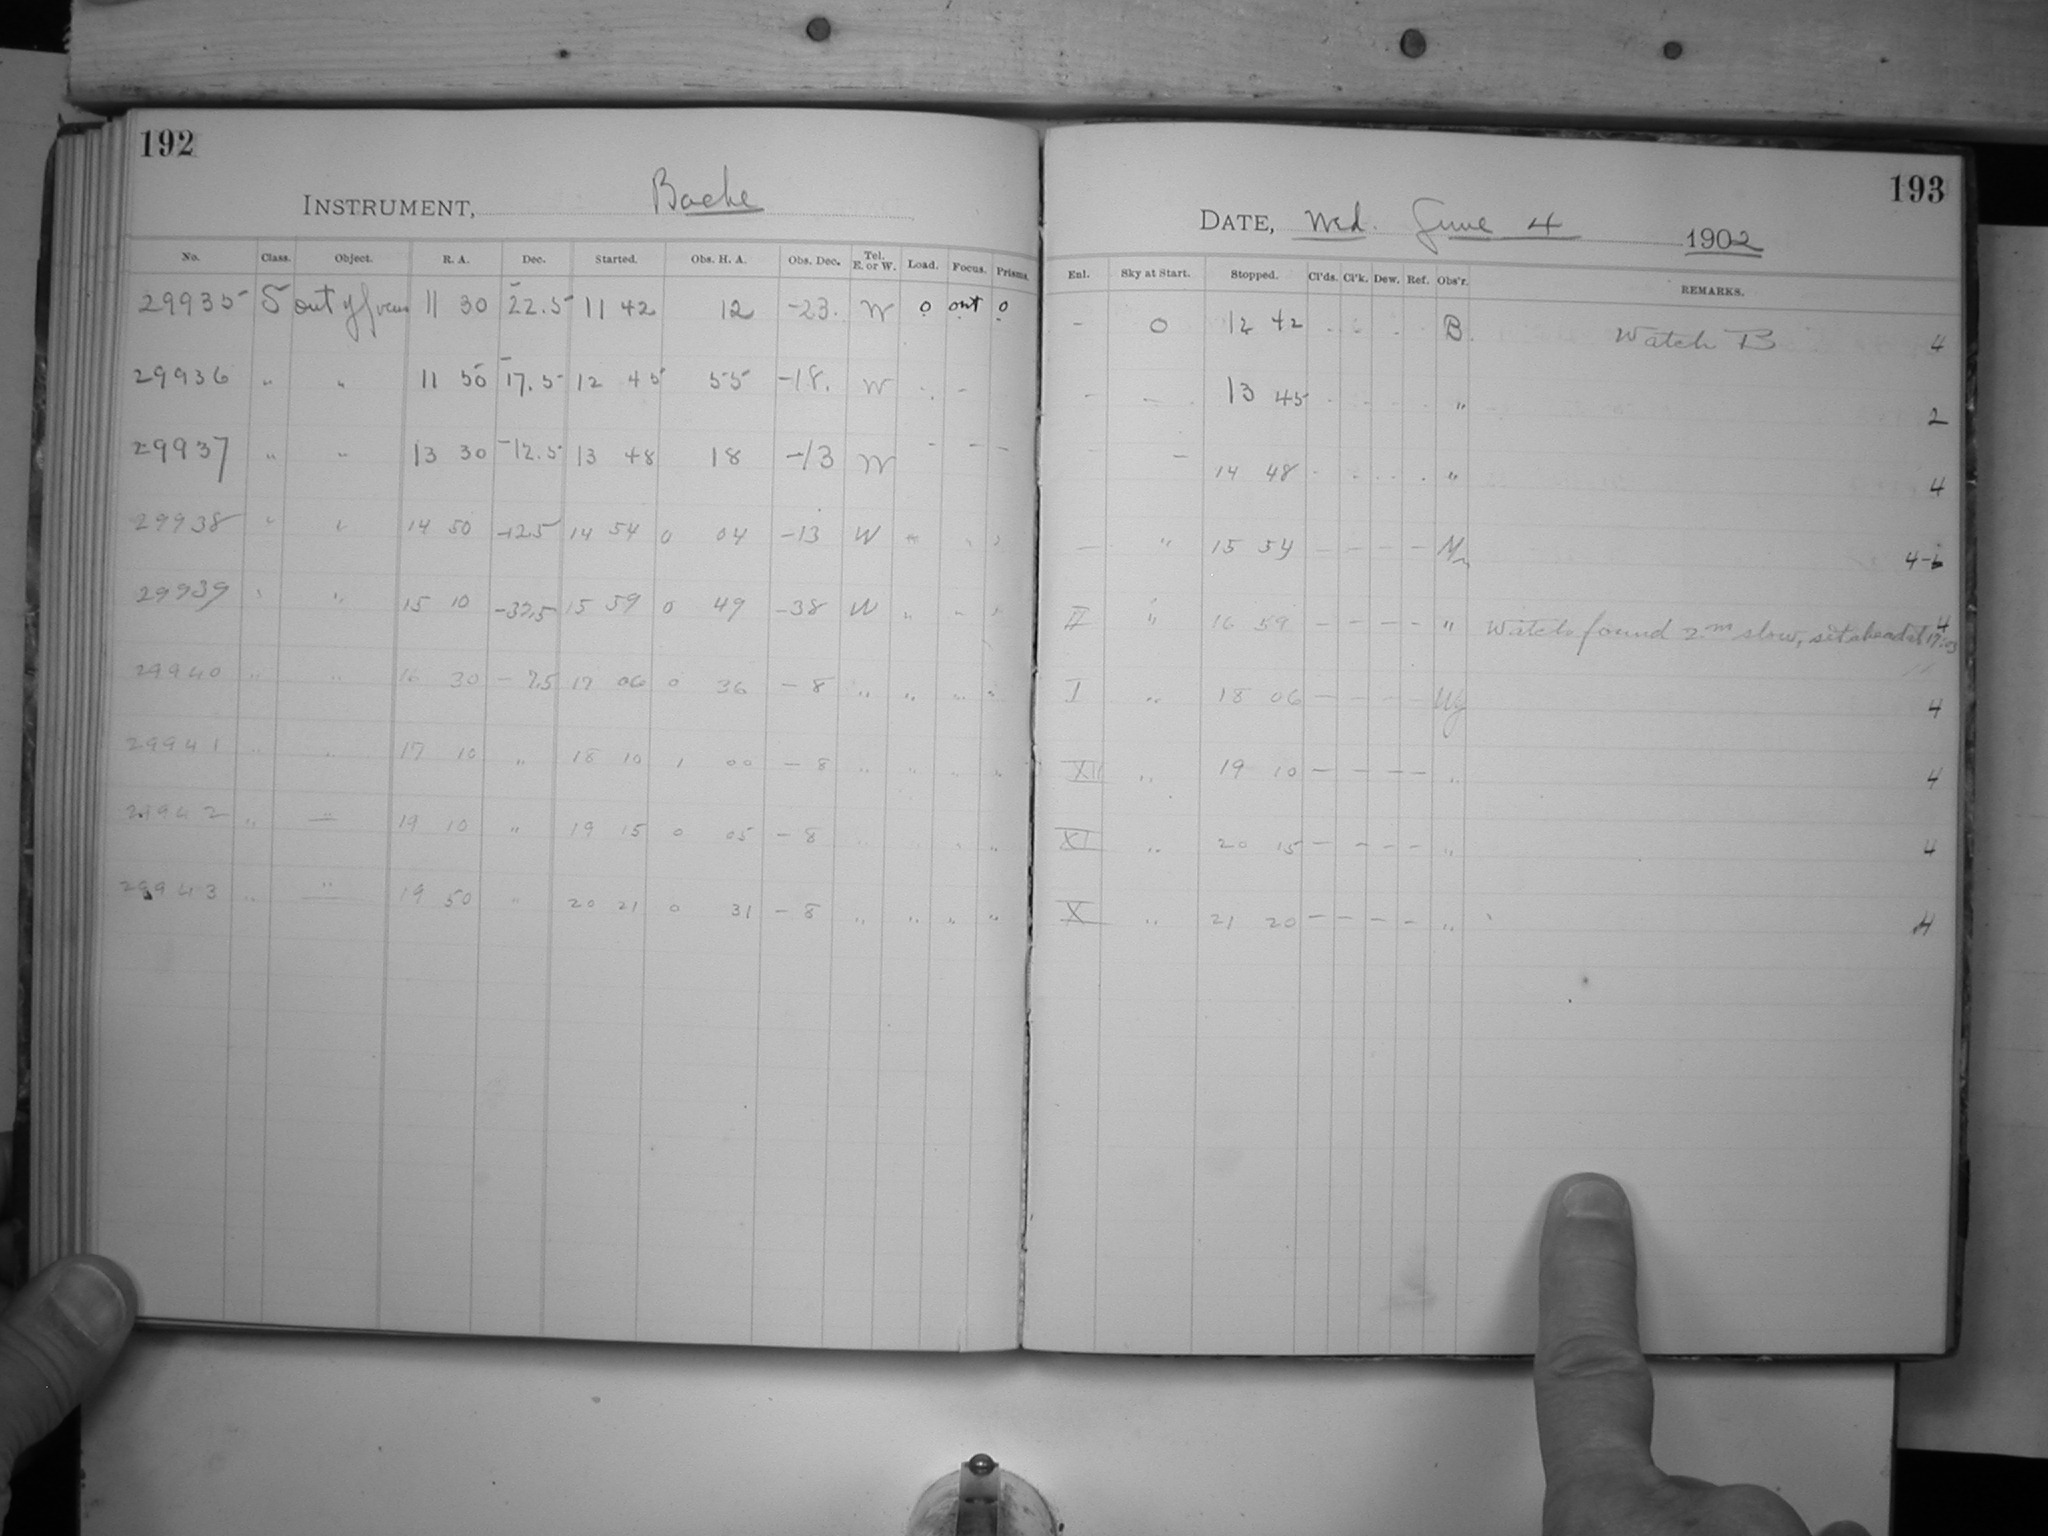 192
INSTRUMENT, Bache
No. Class. Object. R. A. Dec. Started. Obs. H. A. Obs. Dec. Tel. E. or W. Load. Focus. Prisms.
29935 5 out of focus 11 30 -22.5 11 42 12 -23. W 0 out 0
29936 " " 11 50 -17.5 12 45 55 -18. W
29937 " " 13 30 -12.5 13 48 18 -13 W - - -
29938 " " 14 50 -12.5 14 54 0 04 -13 W " " "
29939 " " 15 10 -37.5 15 59 0 49 -38 W " " "
29940 " " 16 30 -7.5 17 06 0 36 -8 " " " "
29941 " " 17 10 " 18 10 1 00 -8 " " " "
29942 " " 19 10 " 19 15 0 05 -8 " " " "
29943 " " 19 50 " 20 21 0 31 -8 " " " "
193
DATE, Wed. June 4 1902
Enl. Sky at Start. Stopped. Cl'ds. Cl'k. Dew. Ref. Obs'r. REMARKS.
- 0 12 42 B. Watch B 4
- - 13 45 " 2
- - 14 48 " 4
- " 15 54 - - - - 4-
II " 16 59 - - - - " Watch found 2m slow, set ahead at 17:03 4
I " 18 06 - - - - 4
XII " 19 10 - - - - " 4
XI " 20 15 - - - - " 4
X " 21 20 - - - - " 4